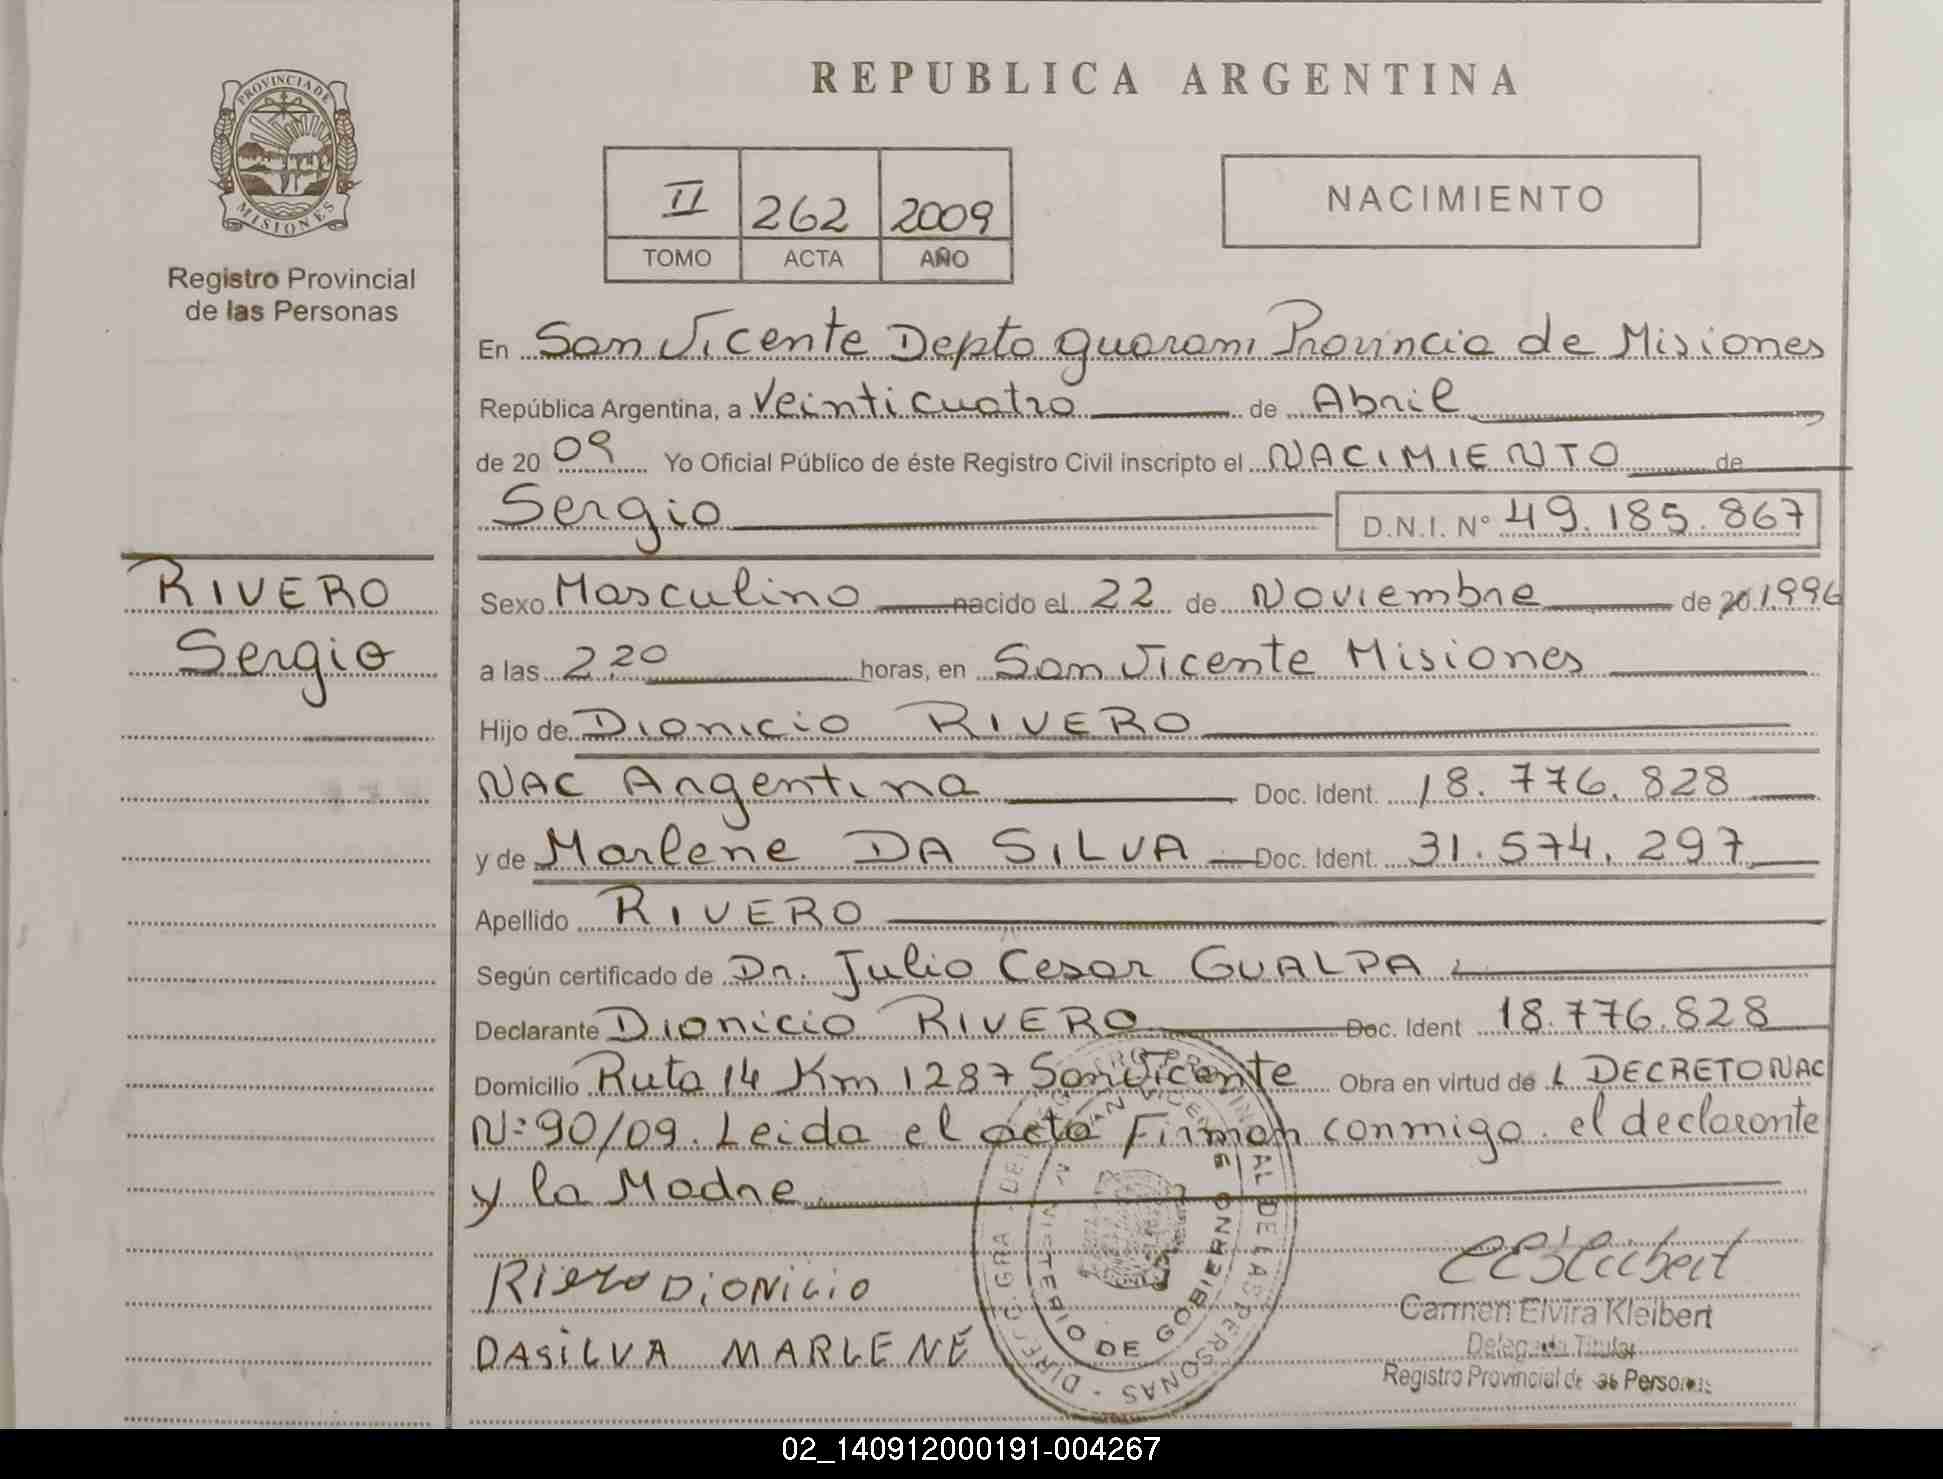 PROVINCIA DE
MISIONES
Registro Provincial
de las Personas
RIVERO
Sergio
REPUBLICA ARGENTINA
II 262 2009
TOMO ACTA AÑO
NACIMIENTO
En San Vicente Depto guarani Provincia de Misiones
República Argentina, a Veinticuatro de Abril
de 2009 Yo Oficial Público de éste Registro Civil inscripto el NACIMIENTO de
Sergio D.N.I. N° 49.185.867
Sexo Masculino nacido el 22 de Noviembre de 20 1996
a las 2,20 horas, en San Vicente Misiones
Hijo de Dionicio RIVERO
NAC Argentina Doc. Ident. 18.776.828
y de Marlene DA SILVA Doc. Ident. 31.574.297
Apellido RIVERO
Según certificado de Dr. Julio Cesar GUALPA
Declarante Dionicio RIVERO Doc. Ident 18.776.828
Domicilio Ruta 14 Km 1287 San Vicente Obra en virtud de L DECRETO NAC
N° 90/09. Leida el acta Firman conmigo el declarante
y la Madre
DIREC. GRAL. DEL REGISTRO PROVINCIAL DE LAS PERSONAS
MINISTERIO DE GOBIERNO
SAN VICENTE
Dionicio
DASiLVA MARLENE
Carmen Elvira Kleibert
Delegada Titular
Registro Provincial de las Personas
02_140912000191-004267